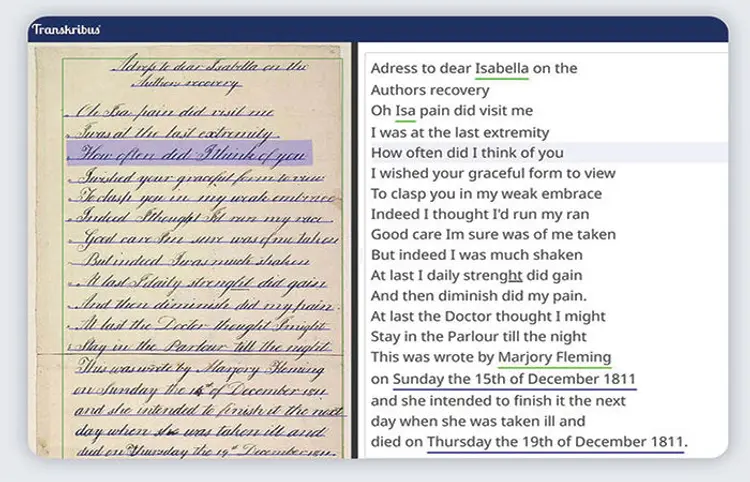 Transkribus
Adress to dear Isabella on the
Authors recovery
Oh Isa pain did visit me
I was at the last extremity
How often did I think of you
I wished your graceful form to view
To clasp you in my weak embrace
Indeed I thought I'd run my race
Good care I'm sure was of me taken
But indeed I was much shaken
At last I daily strenght did gain
And then diminish did my pain.
At last the Doctor thought I might
Stay in the Parlour till the night
This was wrote by Marjory Fleming
on Sunday the 15th of December 1811
and she intended to finish it the next
day when she was taken ill and
died on Thursday the 19th of December 1811.
Adress to dear Isabella on the
Authors recovery
Oh Isa pain did visit me
I was at the last extremity
How often did I think of you
I wished your graceful form to view
To clasp you in my weak embrace
Indeed I thought I'd run my ran
Good care Im sure was of me taken
But indeed I was much shaken
At last I daily strenght did gain
And then diminish did my pain.
At last the Doctor thought I might
Stay in the Parlour till the night
This was wrote by Marjory Fleming
on Sunday the 15th of December 1811
and she intended to finish it the next
day when she was taken ill and
died on Thursday the 19th of December 1811.